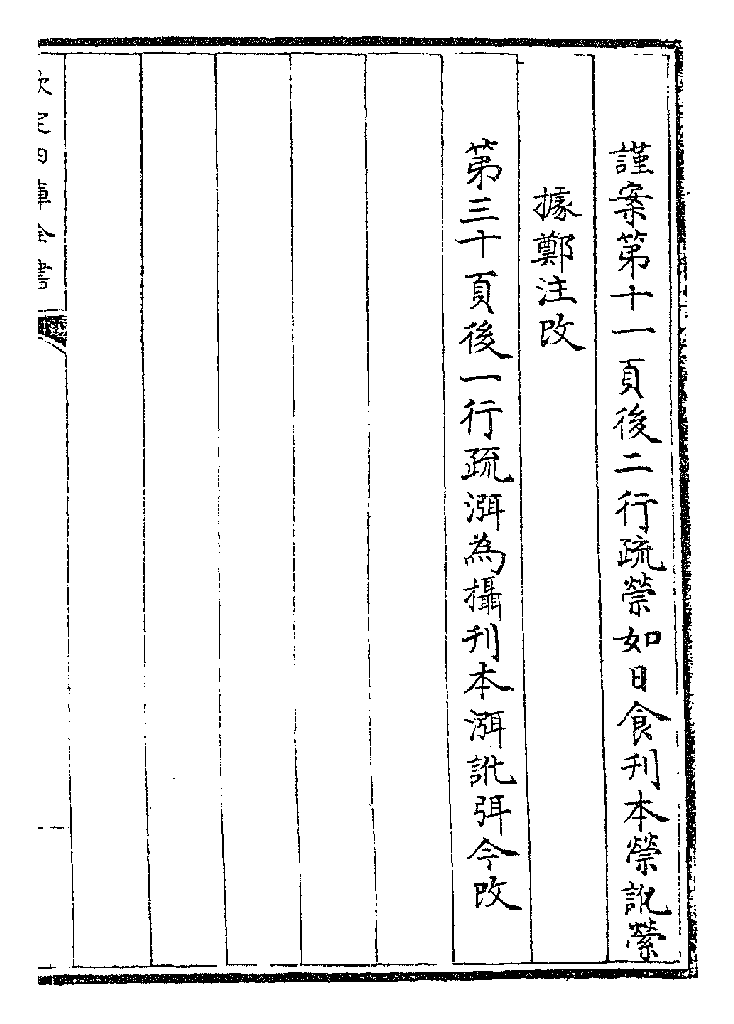 謹案第十一頁後二行疏禜如日食刋本禜訛縈
據鄭注改
第三十頁後一行疏渳為攝刋本渳訛弭今改
欽定四庫全書